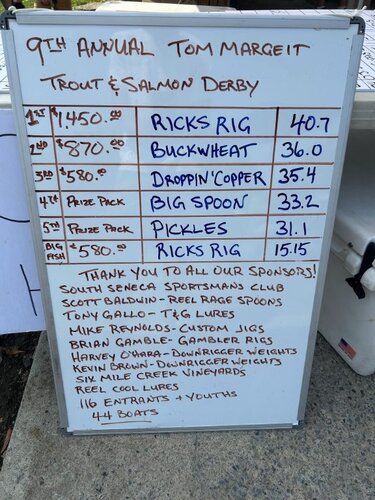 9TH ANNUAL TOM MARGEIT
TROUT & SALMON DERBY
1ST $1,450.00 RICKS RIG 40.7
2ND $870.00 BUCKWHEAT 36.0
3RD $580.00 DROPPIN' COPPER 35.4
4TH PRIZE PACK BIG SPOON 33.2
5TH PRIZE PACK PICKLES 31.1
BIG FISH $580.00 RICKS RIG 15.15
THANK YOU TO ALL OUR SPONSORS!
SOUTH SENECA SPORTSMANS CLUB
SCOTT BALDWIN - REEL RAGE SPOONS
TONY GALLO - T&G LURES
MIKE REYNOLDS - CUSTOM JIGS
BRIAN GAMBLE - GAMBLER RIGS
HARVEY O'HARA - DOWNRIGGER WEIGHTS
KEVIN BROWN - DOWNRIGGER WEIGHTS
SIX MILE CREEK VINEYARDS
REEL COOL LURES
116 ENTRANTS + YOUTHS
44 BOATS